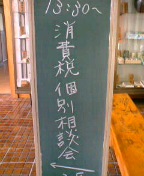 13:30~
消費税個別相談会